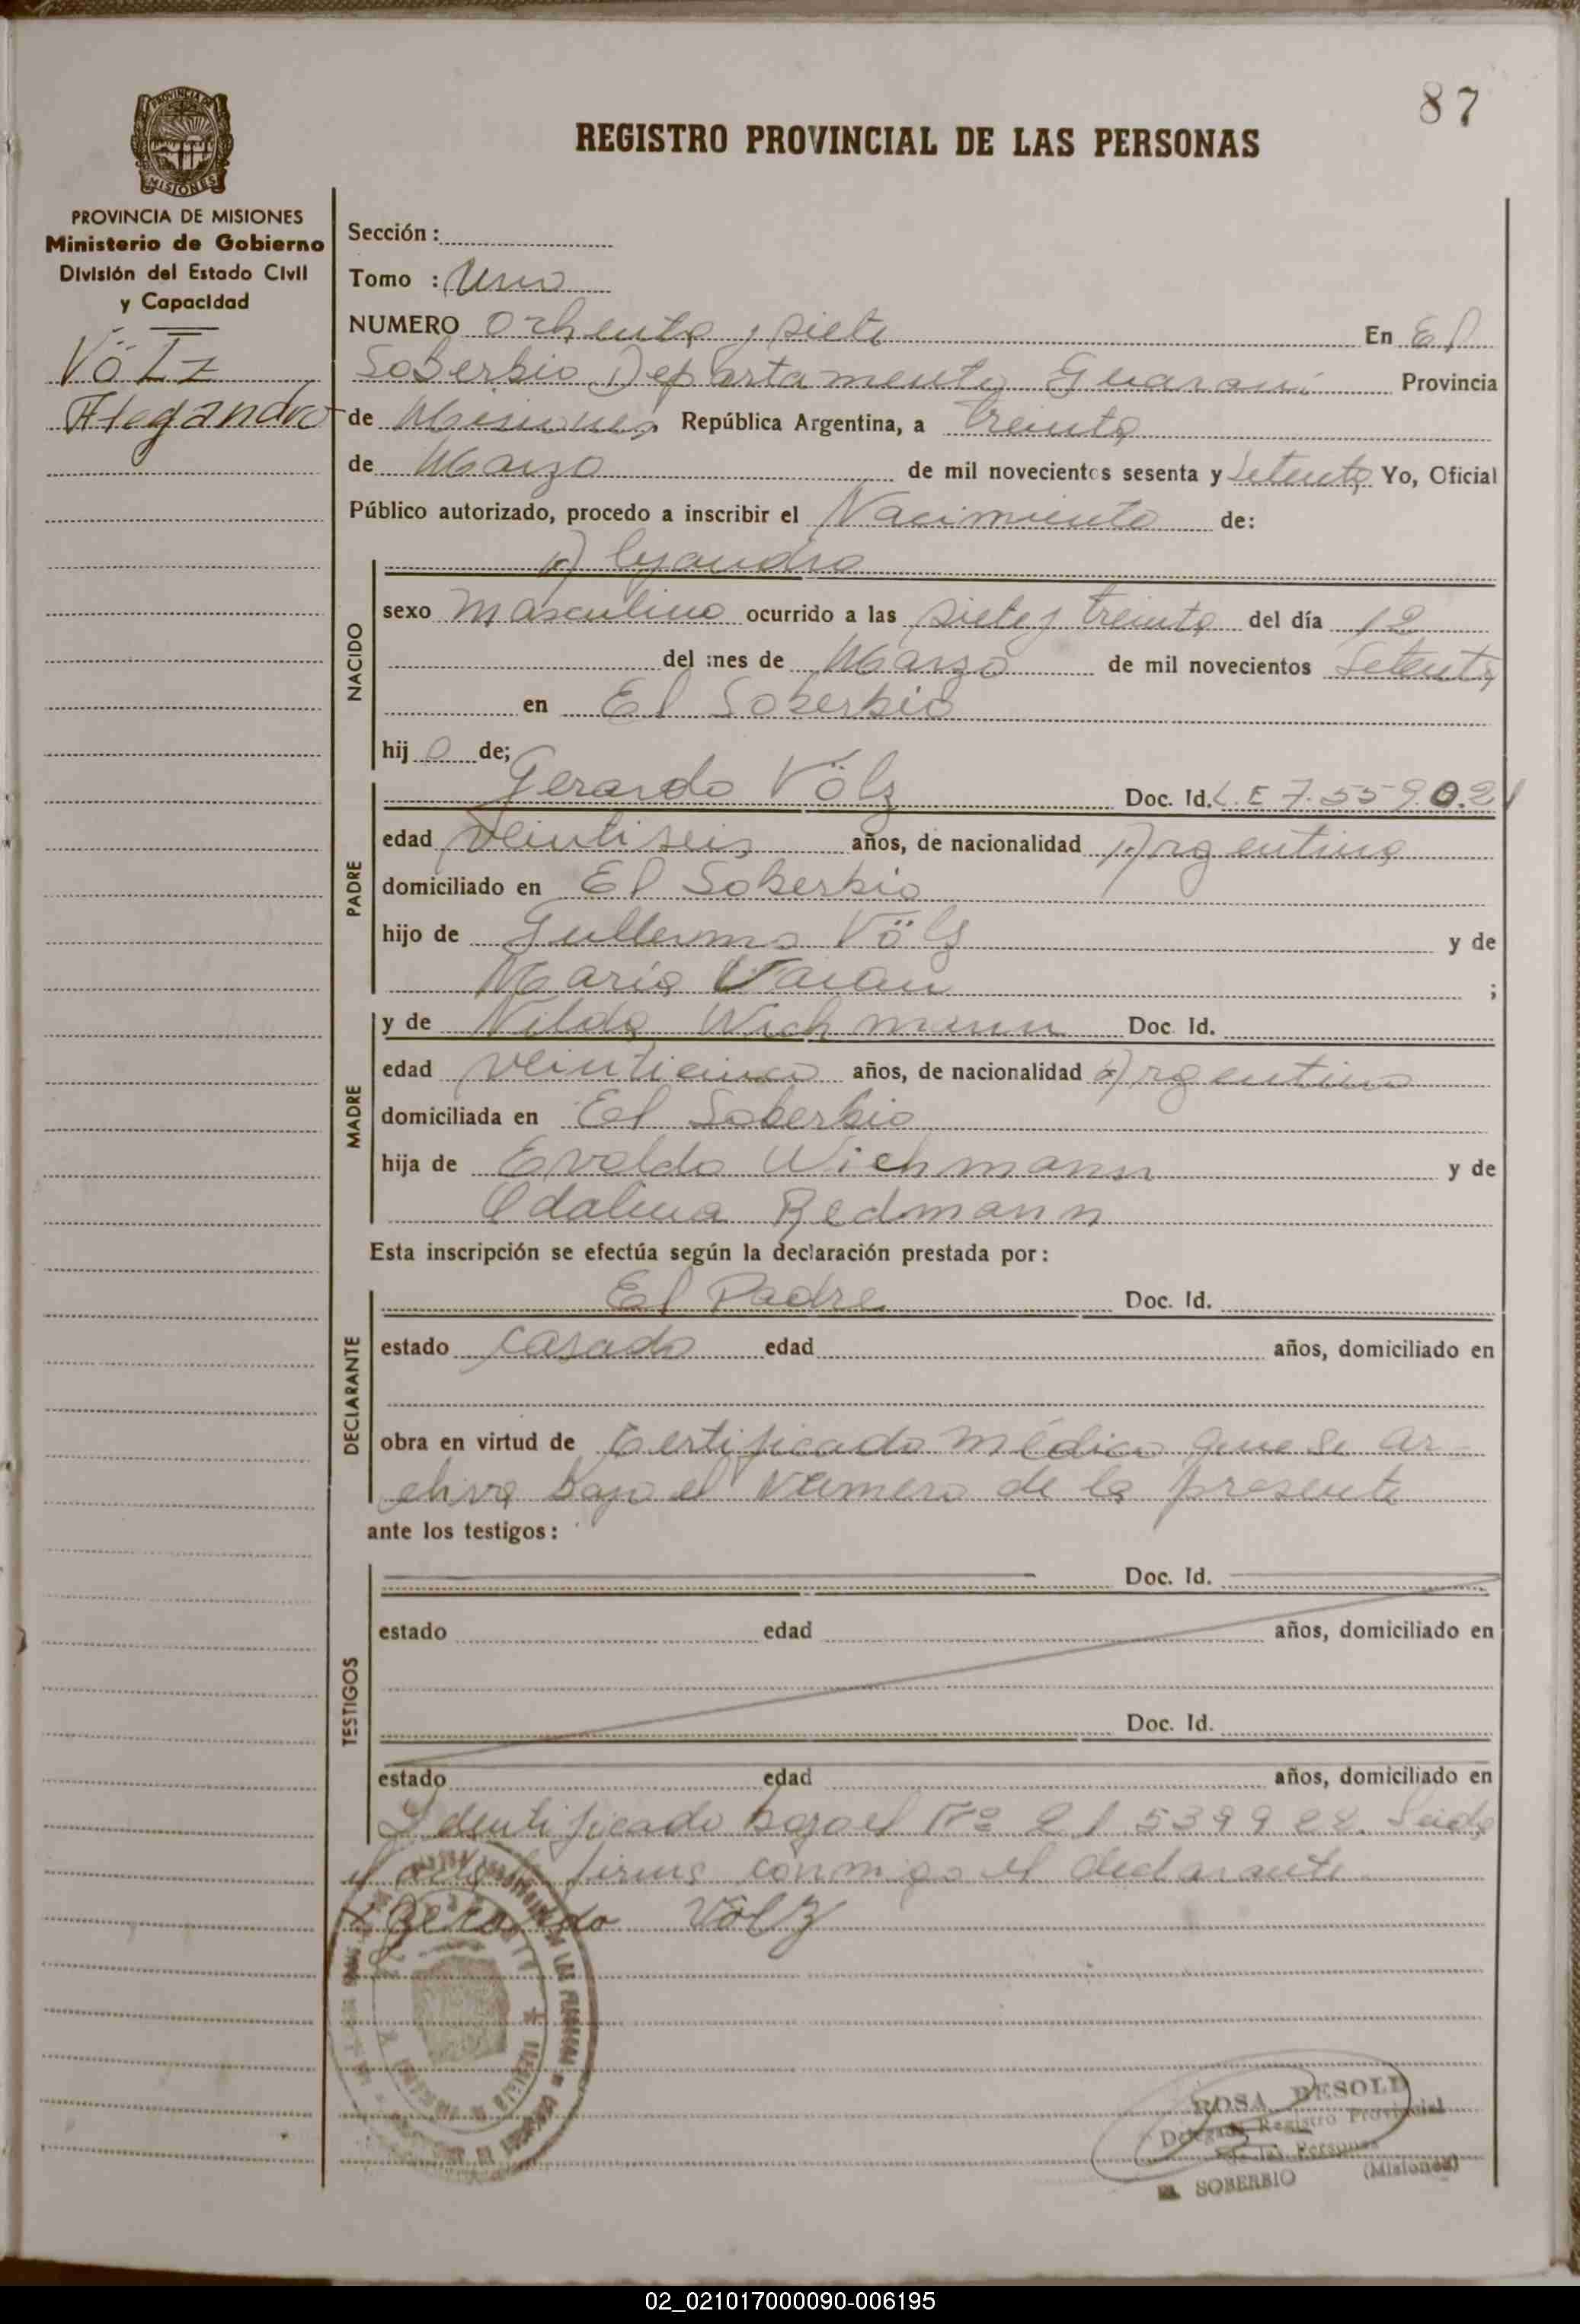 87
REGISTRO PROVINCIAL DE LAS PERSONAS
PROVINCIA DE MISIONES
MISIONES
PROVINCIA DE MISIONES
Ministerio de Gobierno
División del Estado Civil
y Capacidad
VöLz
Alegandro
Sección :
Tomo : Uno
NUMERO Ochenta y siete En El
Soberbio Departamento Guaraní Provincia
de Misiones República Argentina, a treinta
de Marzo de mil novecientos sesenta y Setenta Yo, Oficial
Público autorizado, procedo a inscribir el Nacimiento de:
NACIDO
Alejandro
sexo Masculino ocurrido a las siete y treinta del día 12
del mes de Marzo de mil novecientos Setenta
en El Soberbio
hijo de;
PADRE
Gerardo Völz Doc. Id. L.E 7.559.021
edad veintiseis años, de nacionalidad Argentina
domiciliado en El Soberbio
hijo de Guillermo Völz y de
María ;
MADRE
y de Nilda Wichmann Doc. Id.
edad veinticinco años, de nacionalidad Argentina
domiciliada en El Soberbio
hija de Evaldo Wichmann y de
Odalina Redmann
Esta inscripción se efectúa según la declaración prestada por:
DECLARANTE
El Padre Doc. Id.
estado casado edad años, domiciliado en
obra en virtud de Certificado médico que se ar-
chiva bajo el Número de la presente
ante los testigos:
TESTIGOS
Doc. Id.
estado edad años, domiciliado en
Doc. Id.
estado edad años, domiciliado en
Identificado bajo el Nº 21.539.922. Leida
el acta firma conmigo el declarante
Gerardo Völz
ROSA BESOLD
Delegada Registro Provincial
de las Personas
EL SOBERBIO (Misiones)
02_021017000090-006195